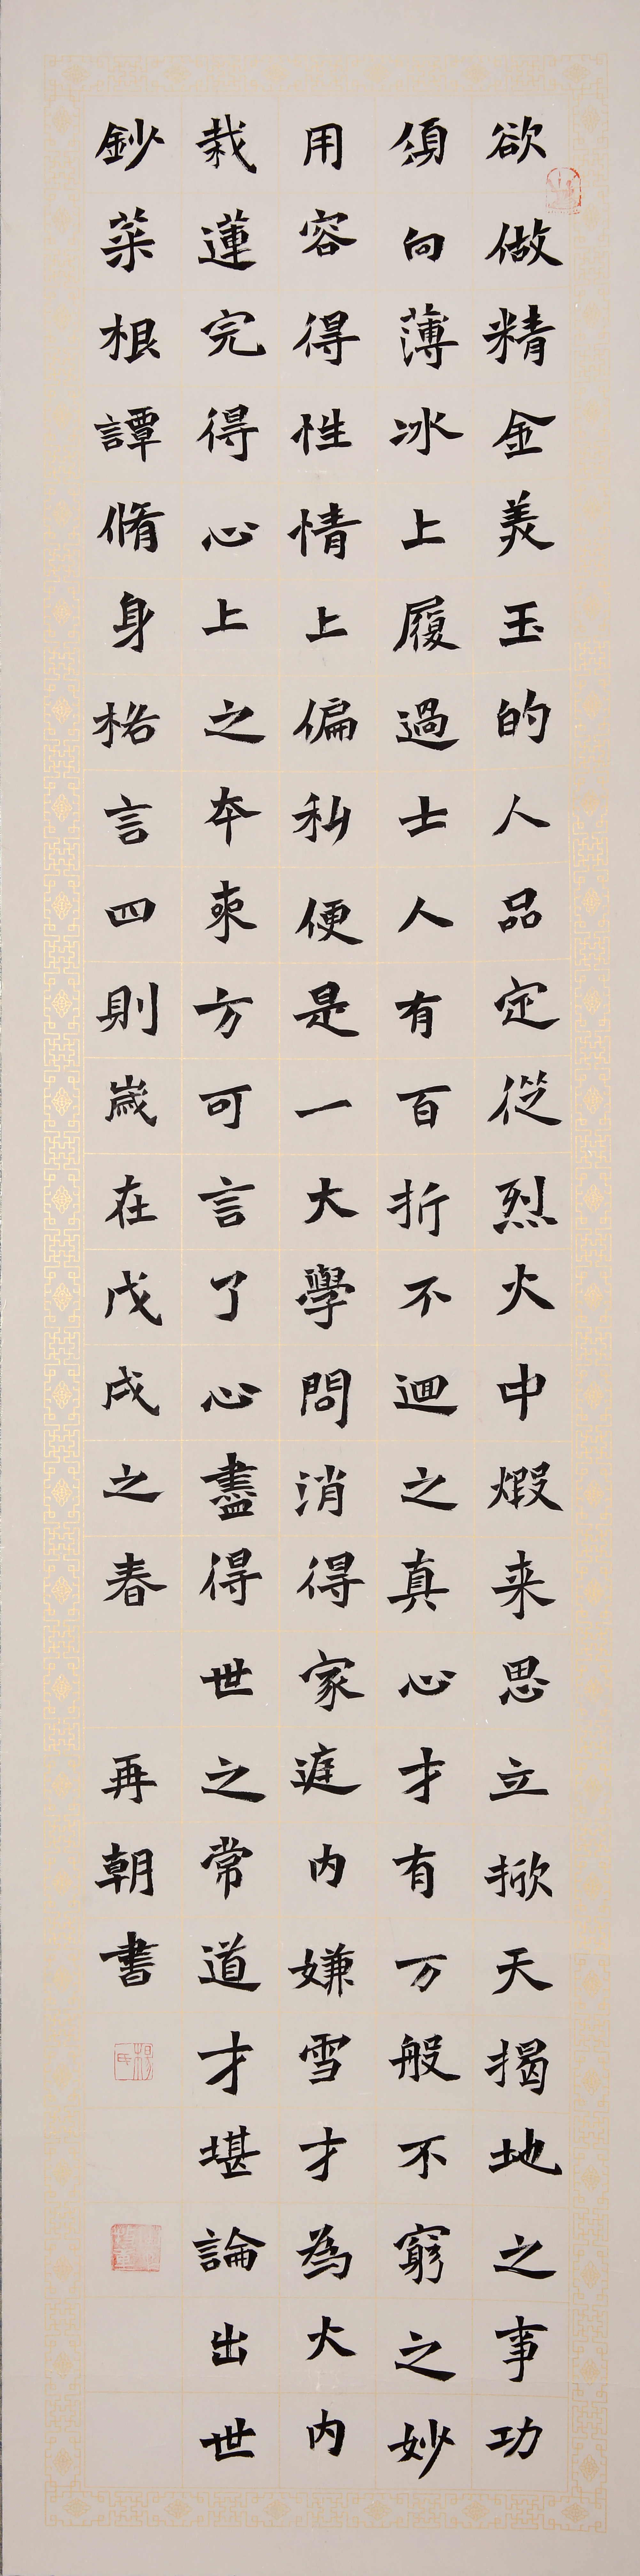 欲做精金美玉的人品定從烈火中煆来思立掀天揭地之事功
須向薄冰上履過士人有百折不迴之真心才有万般不窮之妙
用容得性情上偏私便是一大學問消得家庭内嫌雪才為大内
栽蓮完得心上之夲來方可言了心盡得世之常道才堪論出世
鈔菜根譚脩身格言四則嵗在戊戌之春 再朝書
楊氏